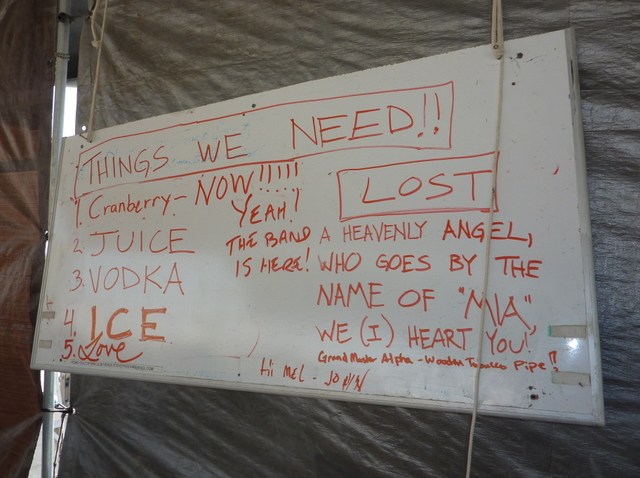 THINGS WE NEED!!
1. Cranberry - NOW!!!!!
2. JUICE
3. VODKA
4. ICE
5. Love
YEAH!
THE BAND
IS HERE!
LOST
A HEAVENLY ANGEL,
WHO GOES BY THE
NAME OF "MIA"
WE (I) HEART YOU!
Grand Master Alpha - Wooden Tobacco Pipe!!
Hi MEL - JOHN